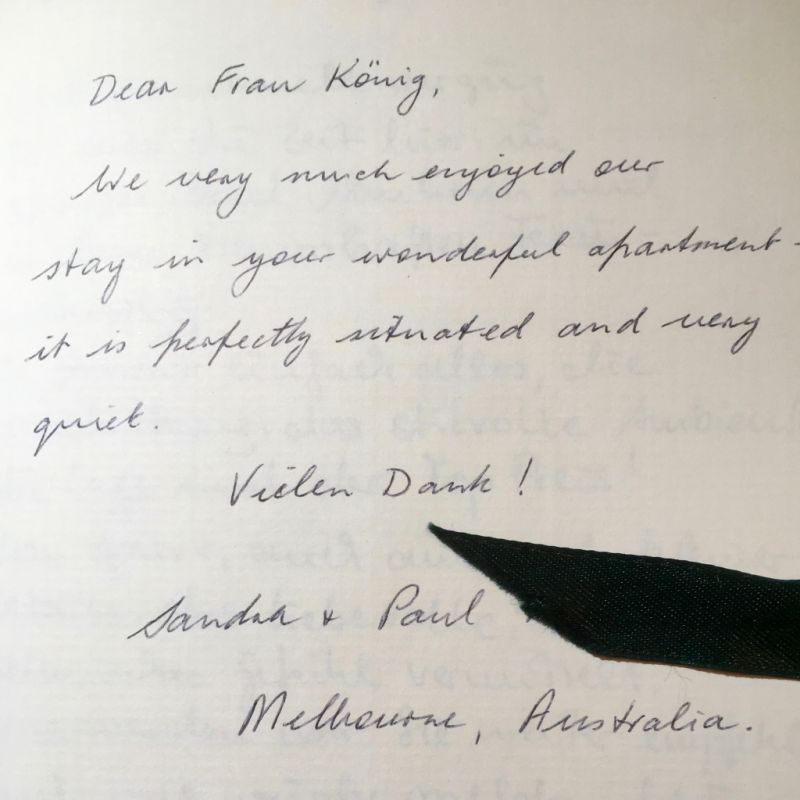 Dear Frau König,
We very much enjoyed our
stay in your wonderful apartment -
it is perfectly situated and very
quiet.
Vielen Dank !
Sandra + Paul
Melbourne, Australia.